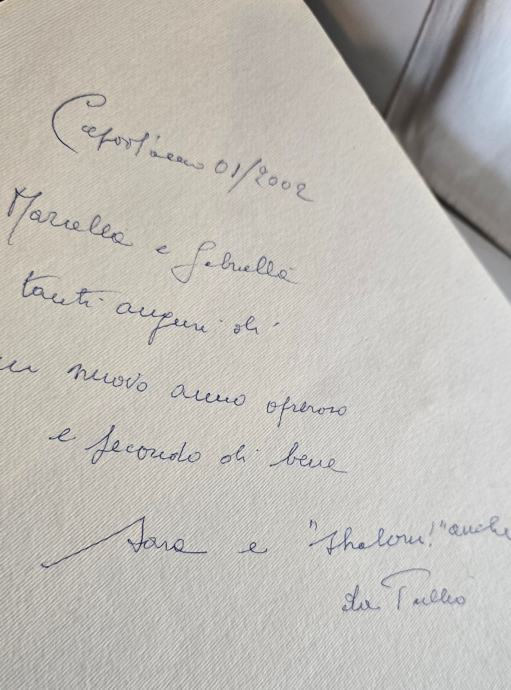 Capod'anno 01/2002
Mariella e Gabriella
tanti auguri di
un nuovo anno operoso
e fecondo di bene
Sara e "Shalom!" anche
da Tullio